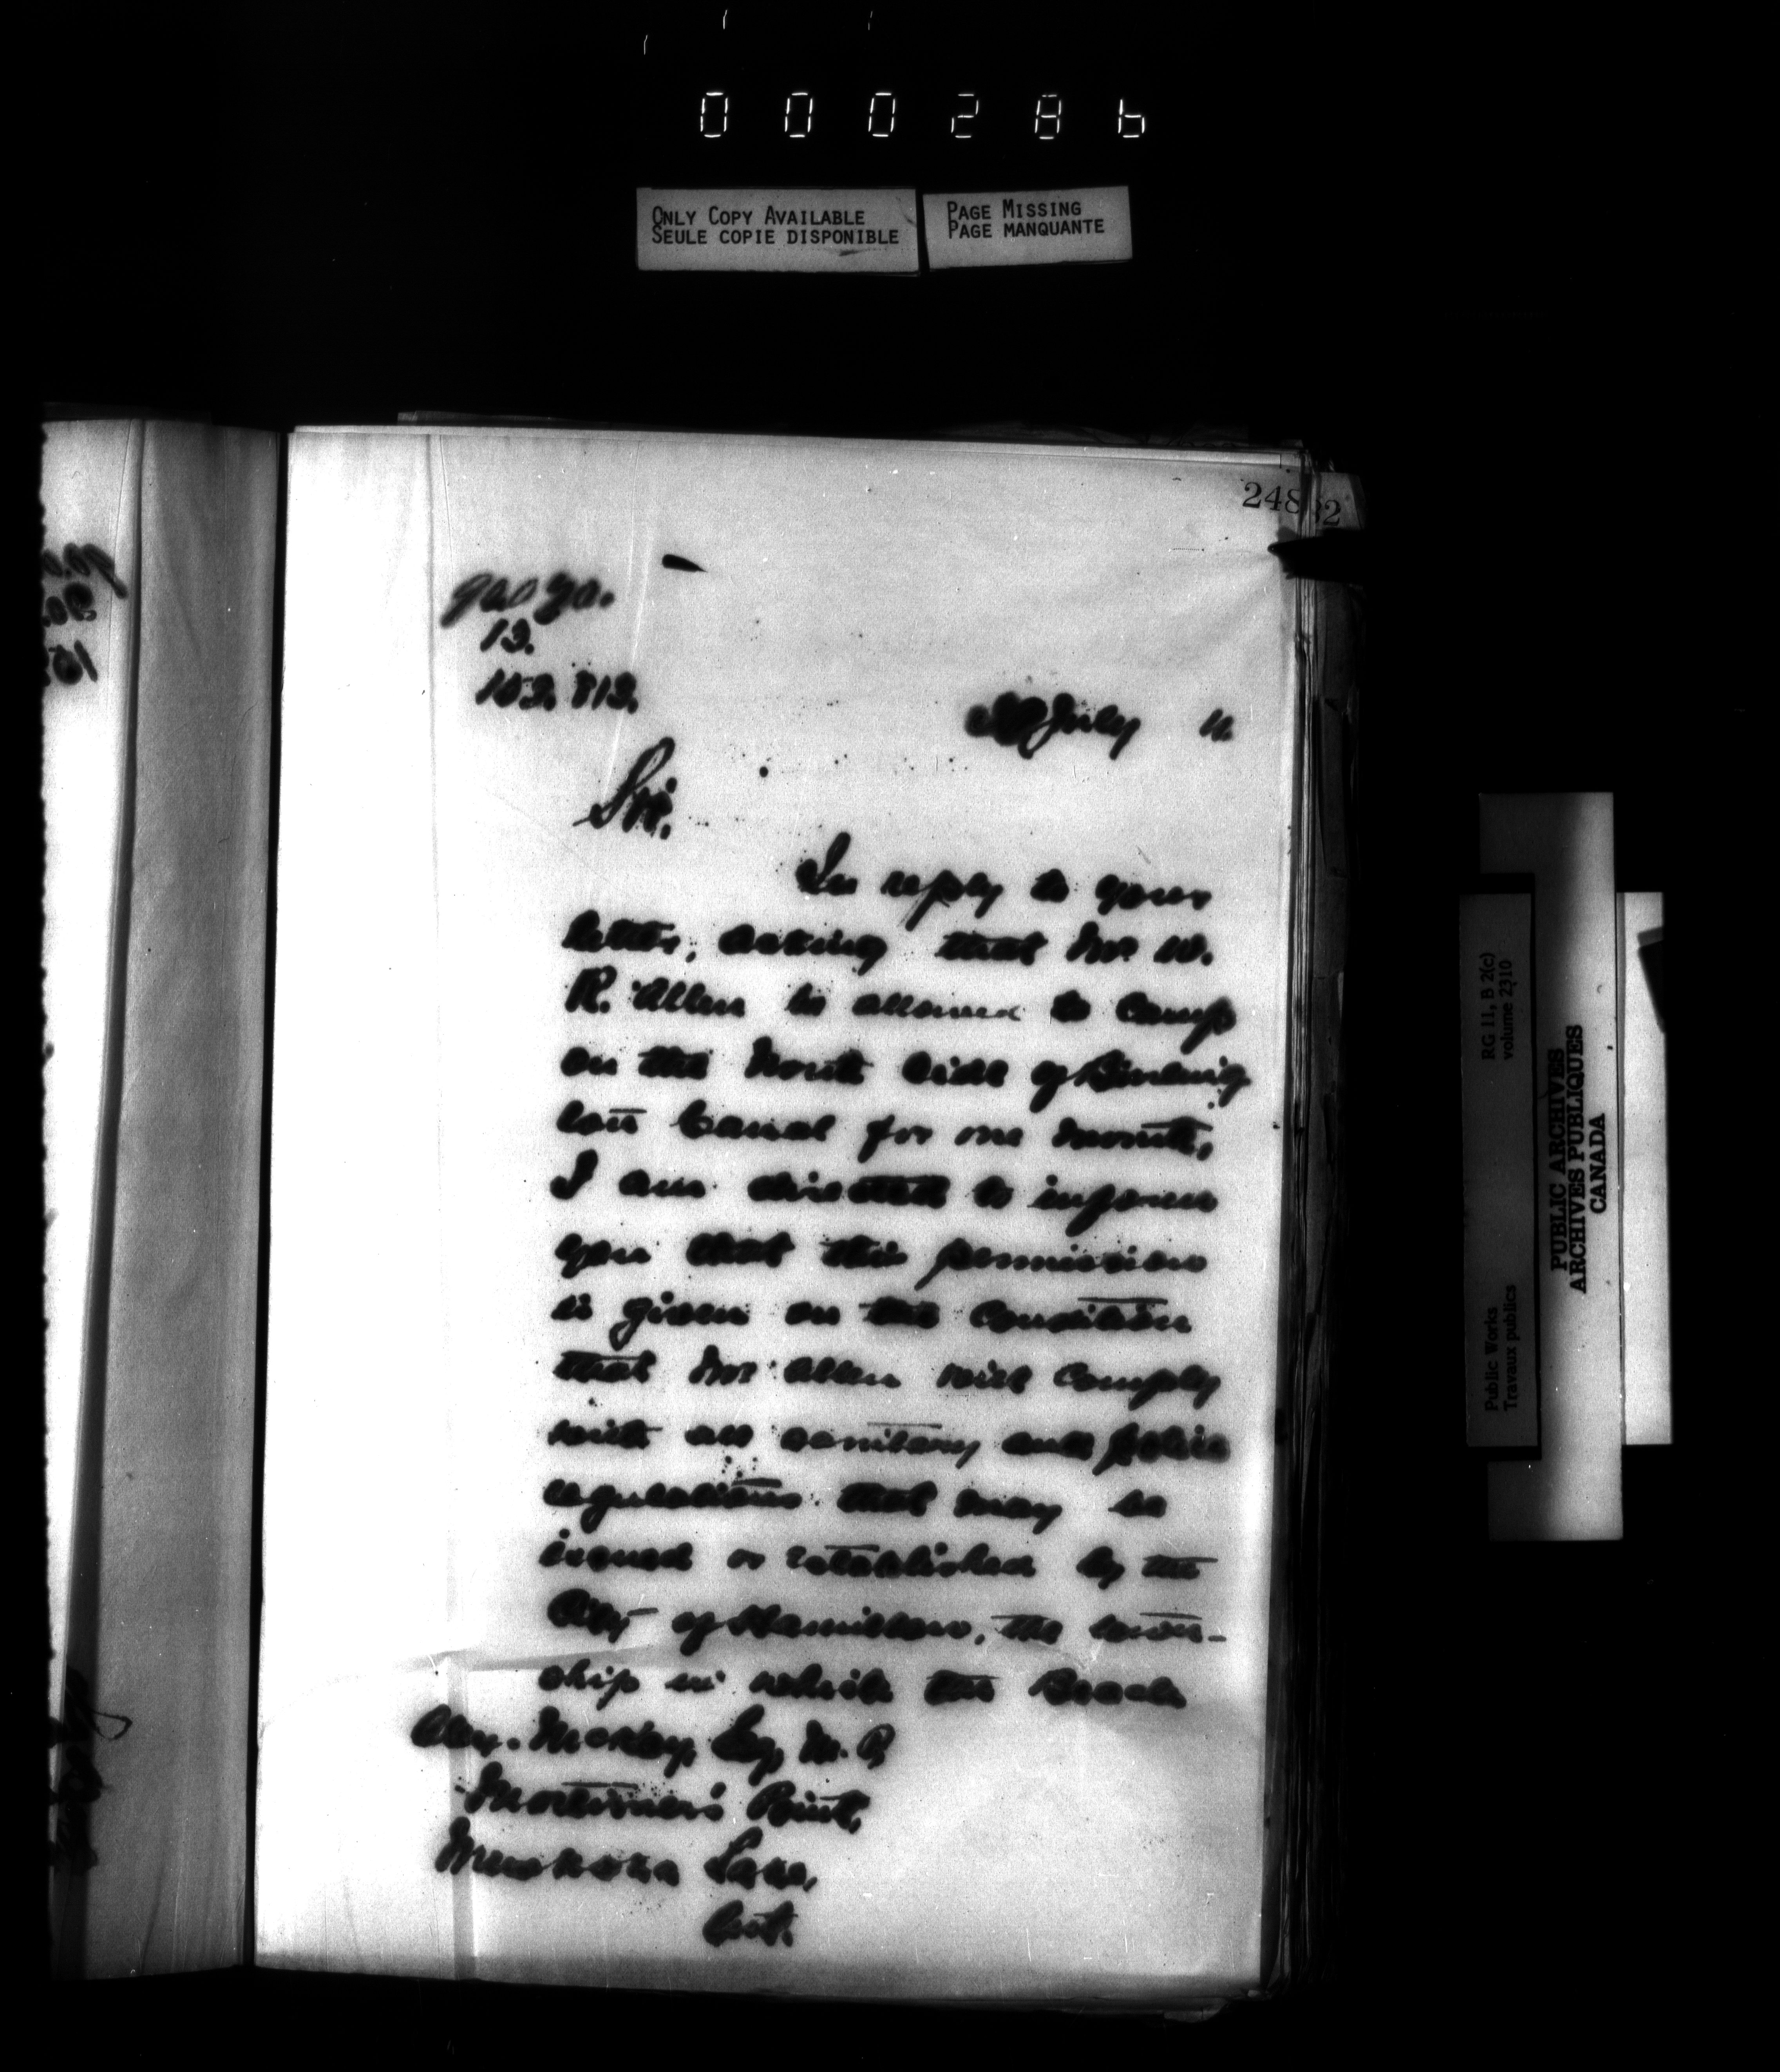 000286
ONLY COPY AVAILABLE
SEULE COPIE DISPONIBLE
PAGE MISSING
PAGE MANQUANTE
248
32
13.
103.813.
July
Sir,
In reply to your
letter, asking that Mr W.
R. Allen be allowed to camp
on the North side of Burling
ton Canal for one month,
I am directed to inform
you that this permission
is given on the condition
that Mr Allen will comply
with all sanitary and police
regulations that may be
issued or established by the
City of Hamilton, the town-
ship in which the Beach
Alex. McKay, Esq, M.P.
Mortimer's Point,
Muskoka Lake,
Ont.
RG 11, B 2(c)
volume 2310
Public Works
Travaux publics
PUBLIC ARCHIVES
ARCHIVES PUBLIQUES
CANADA